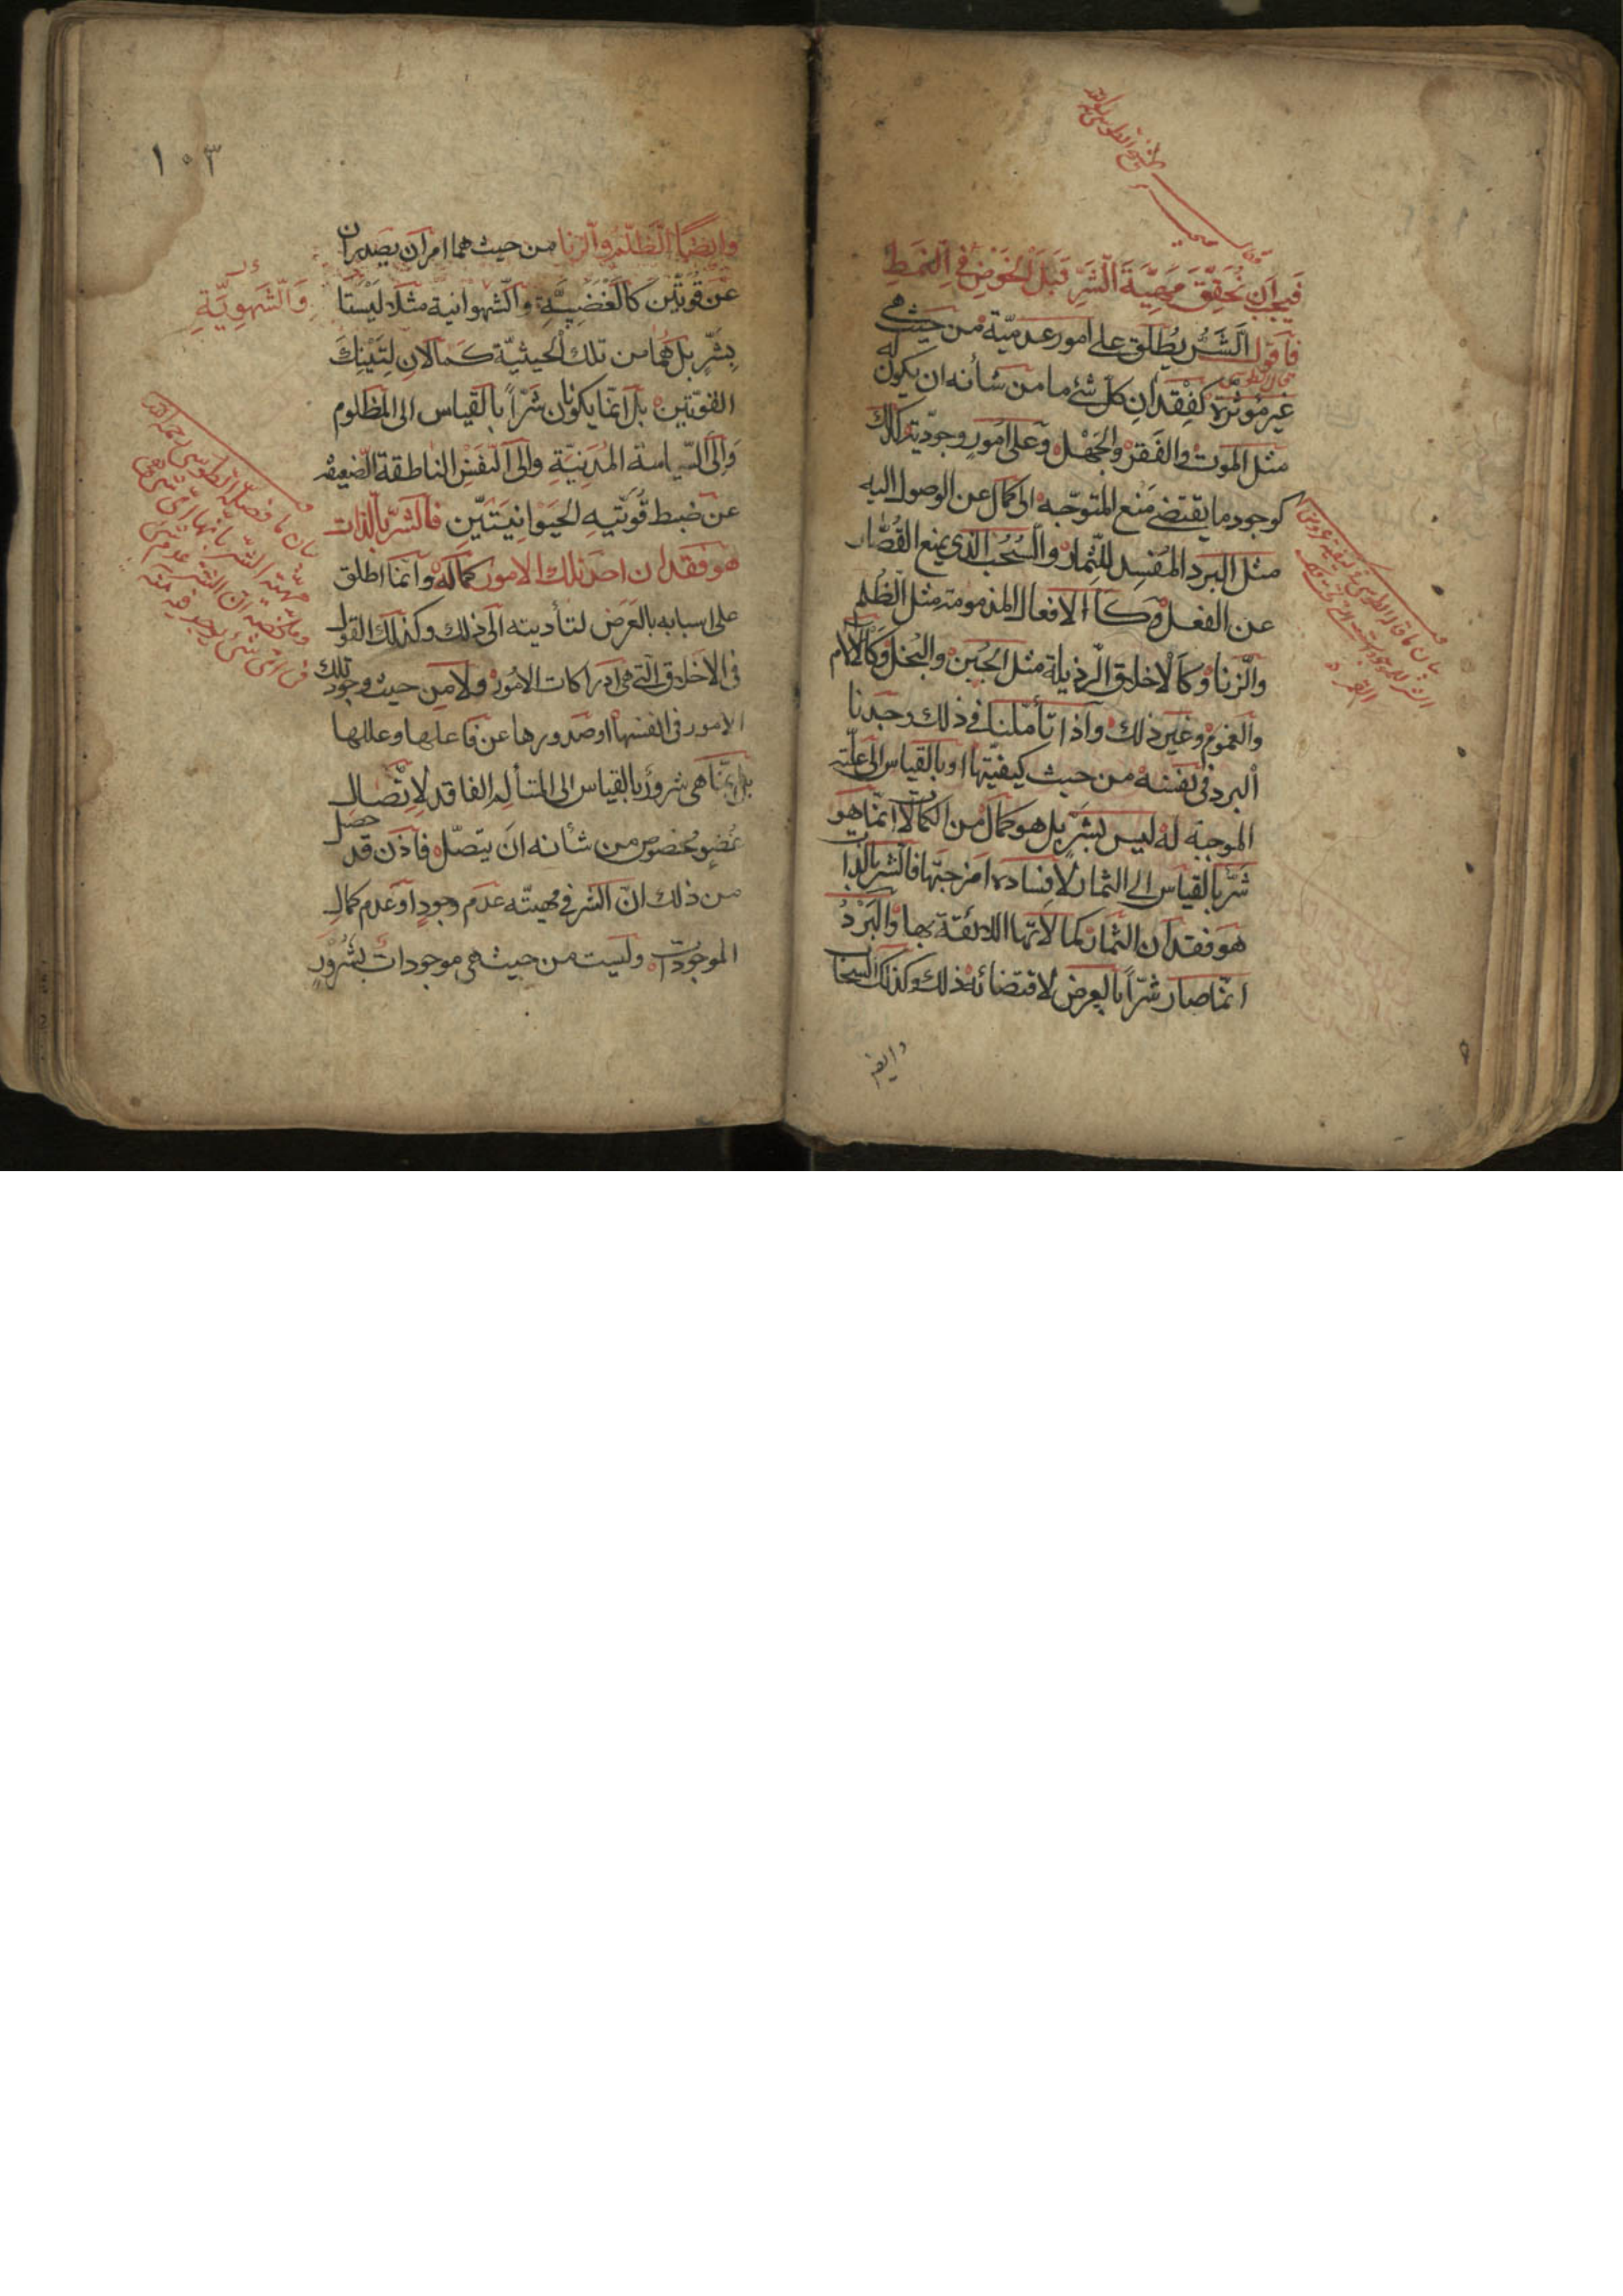 فيجب ان نحقق مهيّة الشّرّ قبل الخوض في النمط
فاقول الشّرّ يطلق على امور عدميّة من حيث هى
غير مؤثرة كفقدان كلّ شئ ما من شأنه ان يكون له
مثل الموت والفقر والجهل وعلى امور وجوديّة كذلك
كوجود ما يقتضى منع المتوجّه الى كمال عن الوصول اليه
مثل البرد المفسد للثمار والسّحب الذى يمنع القصّار
عن الفعل وكالافعال المذمومة مثل الظلم
والزّنا وكالاخلاق الرذيلة مثل الجبن والبخل وكالآلام
والغموم وغير ذلك واذا تأملنا فى ذلك وجدنا
البرد فى نفسه من حيث كيفيّتها او بالقياس الى علّته
الموجبة له ليس بشرّ بل هو كمال من الكمالات انّما هو
شرّ بالقياس الى الثمار لافساده امزجتها فالشر بالذات
هو فقدان الثمار كمالاتها اللائقة بها والبرد
انّما صار شرّاً بالعرض لاقتضائه ذلك وكذلك السحاب
وايضا
١٠٣
وايضًا الظلم والزنا من حيث هما امران يصدران
عن قوّتين كالغضبيّة والشهوانية مثلا ليستا
والشهويّة
بشرّ بل هما من تلك الحيثيّة كمالان لتينك
القوّتين بل انّما يكونان شرّاً بالقياس الى المظلوم
والى السّياسة المدنيّة والى النفس الناطقة الضعيفة
عن ضبط قوّتيه الحيوانيتين فالشرّ بالذات
هو فقدان احد تلك الامور كماله وانّما اطلق
على اسبابه بالعرض لتأديته الى ذلك وكذلك القول
فى الاخلاق التى هى ادراكات الامور ولا من حيث وجود تلك
الامور فى انفسها او صدورها عن فاعلها وعللها
بل انّما هى شرور بالقياس الى المتألم الفاقد لاتّصال
عضو مخصوص من شأنه ان يتصّل فاذن قد حصل
من ذلك انّ الشر فى مهيته عدم وجود او عدم كمال
الموجودات وليست من حيث هى موجودات بشرور